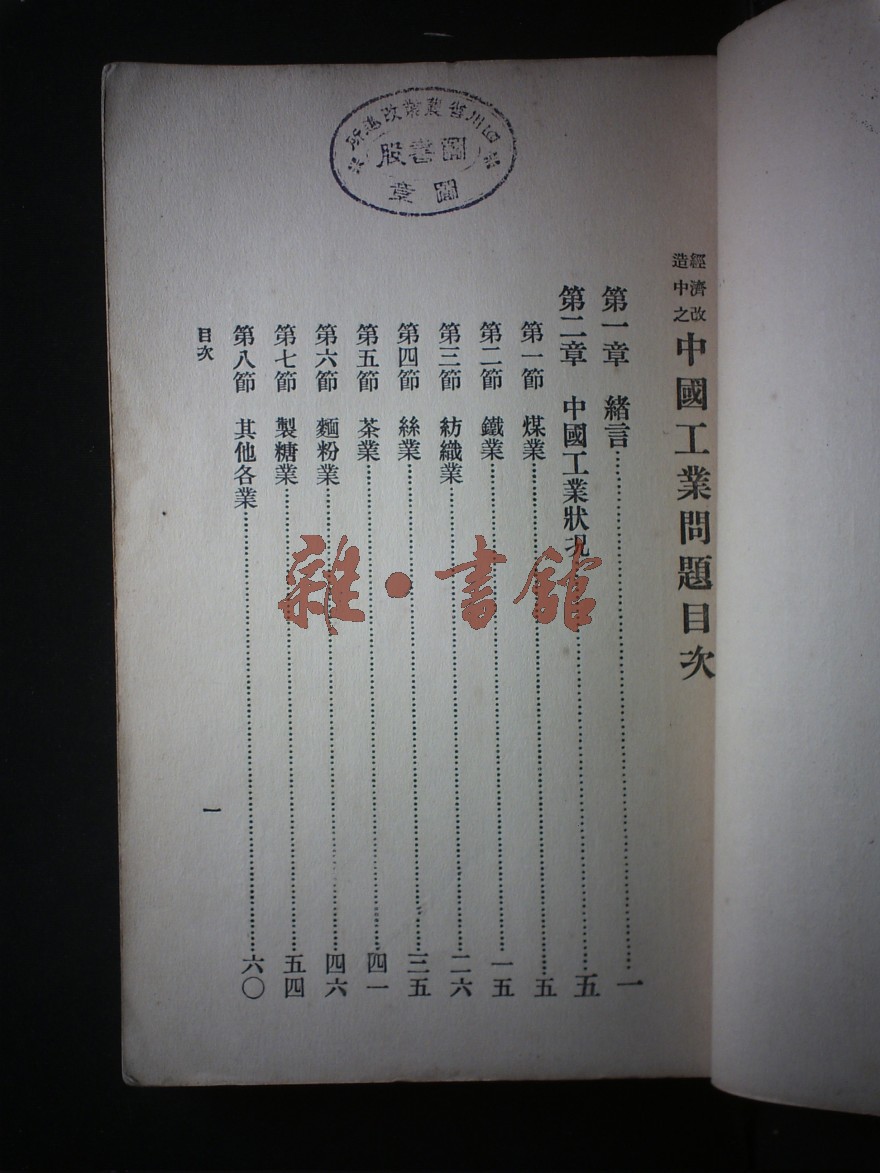 經濟改造中之
中國工業問題目次
第一章 緒言……一
第二章 中國工業狀況……五
第一節 煤業……五
第二節 鐵業……一五
第三節 紡織業……二六
第四節 絲業……三五
第五節 茶業……四一
第六節 麵粉業……四六
第七節 製糖業……五四
第八節 其他各業……六〇
目次
一
四川省農業改進所
圖書股
圖章
雜·書館